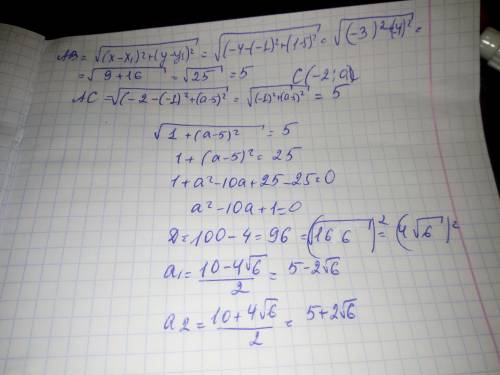 AB = √((x-x₁)²+(y-y₁)²) = √((-4-(-1)²+(1-5)²) = √((-3)²+(4)²) =
= √(9+16) = √25 = 5 C(-2; a)
AC = √((-2-(-1)²+(a-5)²) = √((-1)²+(a-5)²) = 5
√(1+(a-5)²) = 5
1+(a-5)² = 25
1+a²-10a+25-25=0
a²-10a+1=0
D=100-4=96=(√(16 6))²=(4√6)²
a₁ = (10-4√6)/2 = 5-2√6
a₂ = (10+4√6)/2 = 5+2√6